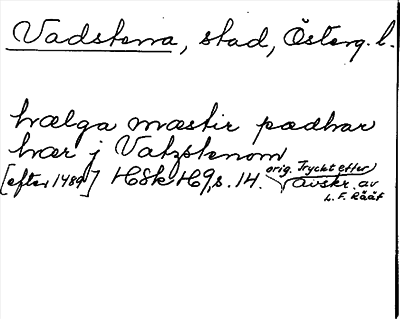 Vadstena, stad, Österg. l.
hælga mæstir pædhar
hær j Vatzstenom
[efter 1489] HSk H9, s. 14. orig. Tryckt efter
avskr. av
L. F. Rääf